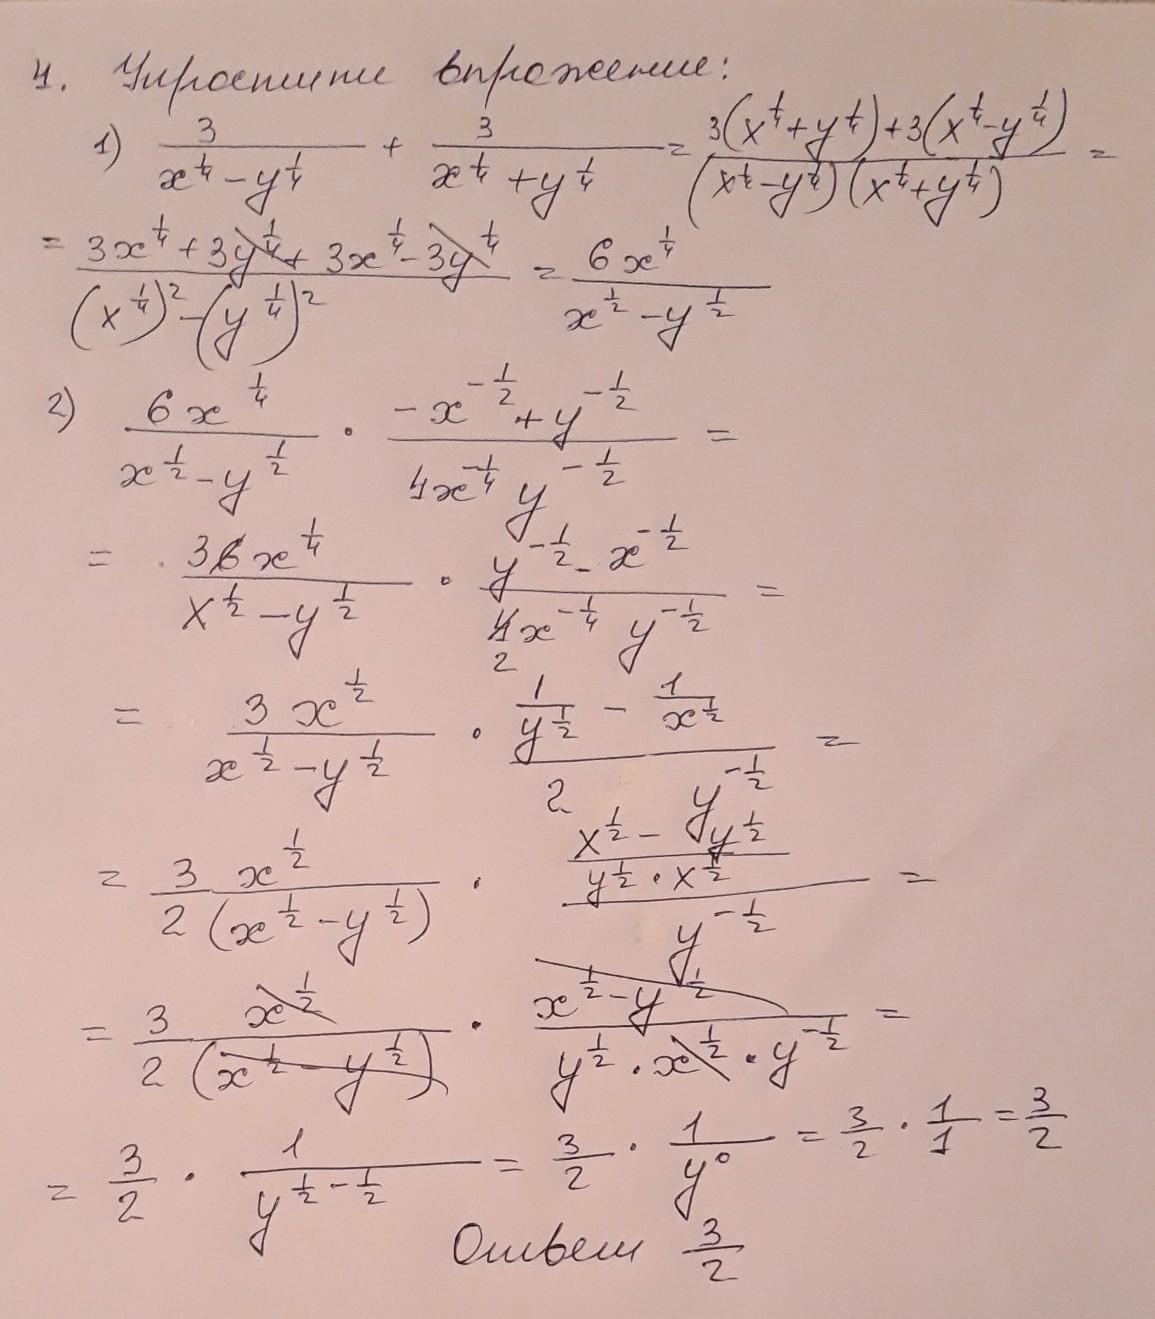 4. Упростите выражение:
1) 3/(x^(1/4) - y^(1/4)) + 3/(x^(1/4) + y^(1/4)) = (3(x^(1/4) + y^(1/4)) + 3(x^(1/4) - y^(1/4)))/((x^(1/4) - y^(1/4))(x^(1/4) + y^(1/4))) =
= (3x^(1/4) + 3y^(1/4) + 3x^(1/4) - 3y^(1/4))/((x^(1/4))^2 - (y^(1/4))^2) = 6x^(1/4)/(x^(1/2) - y^(1/2))
2) 6x^(1/4)/(x^(1/2) - y^(1/2)) · (-x^(-1/2) + y^(-1/2))/(4x^(-1/4) y^(-1/2)) =
= 3 6x^(1/4)/(x^(1/2) - y^(1/2)) · (y^(-1/2) - x^(-1/2))/(4 2 x^(-1/4) y^(-1/2)) =
= 3x^(1/2)/(x^(1/2) - y^(1/2)) · (1/y^(1/2) - 1/x^(1/2))/(2 y^(-1/2)) =
= 3x^(1/2)/(2(x^(1/2) - y^(1/2))) · ((x^(1/2) - y^(1/2))/(y^(1/2) · x^(1/2)))/y^(-1/2) =
= 3x^(1/2)/(2(x^(1/2) - y^(1/2))) · (x^(1/2) - y^(1/2))/(y^(1/2) · x^(1/2) · y^(-1/2)) =
= 3/2 · 1/y^(1/2 - 1/2) = 3/2 · 1/y^0 = 3/2 · 1/1 = 3/2
Ответ 3/2